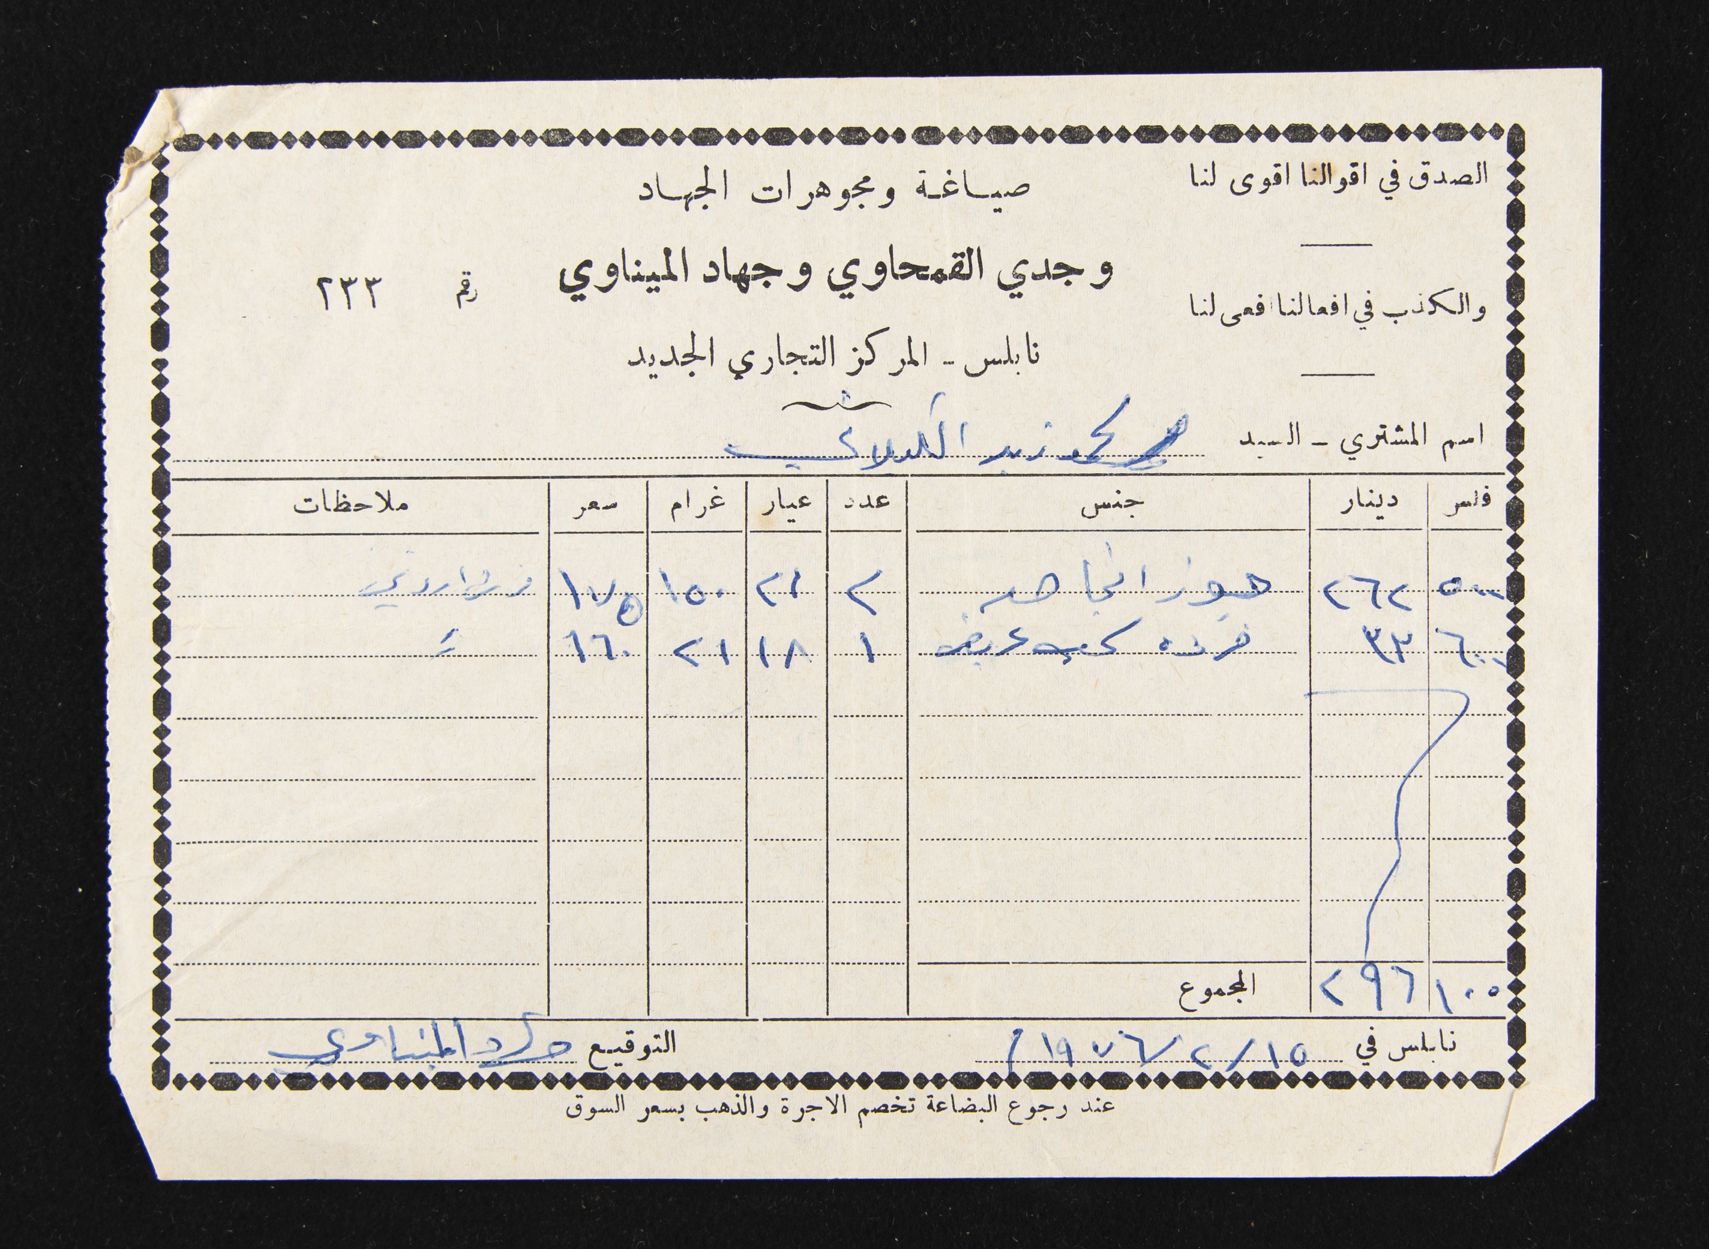 الصدق في اقوالنا اقوى لنا
والكذب في افعالنا افعى لنا
صياغة ومجوهرات الجهاد
وجدي القمحاوي وجهاد الميناوي
رقم ٢٣٣
نابلس - المركز التجاري الجديد
اسم المشتري - السيد
فلس دينار جنس عدد عيار غرام سعر ملاحظات
٥٠٠ ٢٦٢ جوز ٢ ٢١ ١٥٠ ١٧٥
٦٠٠ ٣٣ ١ ١٨ ٢١ ١٦٠
١٠٠ ٢٩٦ المجموع
نابلس في ١٥/٢/١٩٧٦م التوقيع جهاد الميناوي
عند رجوع البضاعة تخصم الاجرة والذهب بسعر السوق